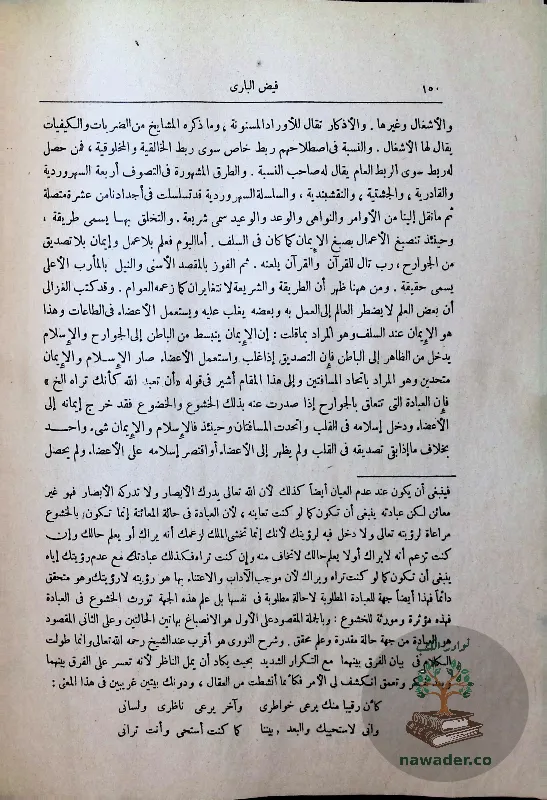 ١٥٠
فيض البارى
والأشغال وغيرها . والأذكار تقال للأوراد المسنونة ، وما ذكره المشايخ من الضربات والكيفيات
يقال لها الأشغال . والنسبة فى اصطلاحهم ربط خاص سوى ربط الخالقية والمخلوقية ، فمن حصل
له ربط سوى الربط العام يقال له صاحب النسبة . والطرق المشهورة فى التصوف أربعة السهروردية
والقادرية ، والجشتية ، والنقشبندية ، والسلسلة السهروردية قد تسلسلت فى أجدادنا من عشرة متصلة
ثم ما نقل إلينا من الأوامر والنواهى والوعد والوعيد سمى شريعة . والتخلق بها يسمى طريقة ،
وحينئذ تنصبغ الأعمال بصبغ الإيمان كما كان فى السلف . أما اليوم فعلم بلا عمل وإيمان بلا تصديق
من الجوارح ، رب تال للقرآن والقرآن يلعنه . ثم الفوز بالمقصد الأسنى والنيل بالمأرب الأعلى
يسمى حقيقة . ومن ههنا ظهر أن الطريقة والشريعة لا تتغايران كما زعمه العوام . وقد كتب الغزالى
أن بعض العلم لا يضطر العالم إلى العمل به وبعضه يغلب عليه ويستعمل الأعضاء فى الطاعات وهذا
هو الإيمان عند السلف وهو المراد بما قلت : إن الإيمان ينبسط من الباطن إلى الجوارح والإسلام
يدخل من الظاهر إلى الباطن فإن التصديق إذا غلب واستعمل الأعضاء صار الإسلام والإيمان
متحدين وهو المراد باتحاد المسافتين وإلى هذا المقام أشير فى قوله «أن تعبد الله كأنك تراه الخ»
فإن العبادة التى تتعلق بالجوارح إذا صدرت عنه بذلك الخشوع والخضوع فقد خرج إيمانه إلى
الأعضاء ودخل إسلامه فى القلب واتحدت المسافتان وحينئذ فالإسلام والإيمان شىء واحد
بخلاف ما إذا بقى تصديقه فى القلب ولم يظهر إلى الأعضاء أو اقتصر إسلامه على الأعضاء ولم يحصل
فينبغى أن يكون عند عدم العيان أيضاً كذلك لأن الله تعالى يدرك الأبصار ولا تدركه الأبصار فهو غير
معائن لكن عبادته ينبغى أن تكون كما لو كنت تعاينه ، لأن العبادة فى حالة المعائنة إنما تكون بالخشوع
مراعاة لرؤيته تعالى ولا دخل فيه لرؤيتك لأنك إنما تخشى الملك لزعمك أنه يراك أو يعلم حالك وإن
كنت تزعم أنه لا يراك أو لا يعلم حالك لا تخاف منه وإن كنت تراه فكذلك عبادتك مع عدم رؤيتك إياه
ينبغى أن تكون كما لو كنت تراه ويراك لأن موجب الآداب والاعتناء بها هو رؤيته لا رؤيتك وهو متحقق
دائماً فهذا أيضاً جهة للعبادة المطلوبة لا حالة مطلوبة فى نفسها بل علم هذه الجهة تورث الخشوع فى العبادة
فهذه مؤثرة ومورثة للخشوع : وبالجملة المقصود على الأول هو الانصباغ بهاتين الحالتين وعلى الثانى المقصود
هو العبادة من جهة حالة مقدرة وعلم محقق . وشرح النووى هو أقرب عند الشيخ رحمه الله تعالى وإنما طولت
الكلام فى بيان الفرق بينهما مع التكرار الشديد بحيث يكاد أن يمل الناظر لأنه تعسر على الفرق بينهما
وبعد تفكر وتعمق انكشف لى الأمر فكأنما أنشطت من العقال ، ودونك بيتين غريبين فى هذا المعنى :
كأن رقيبا منك يرعى خواطرى وآخر يرعى ناظرى ولسانى
وانى لاستحييك والبعد بيننا كما كنت أستحى وأنت ترانى
نوادر الكتب
nawader.co